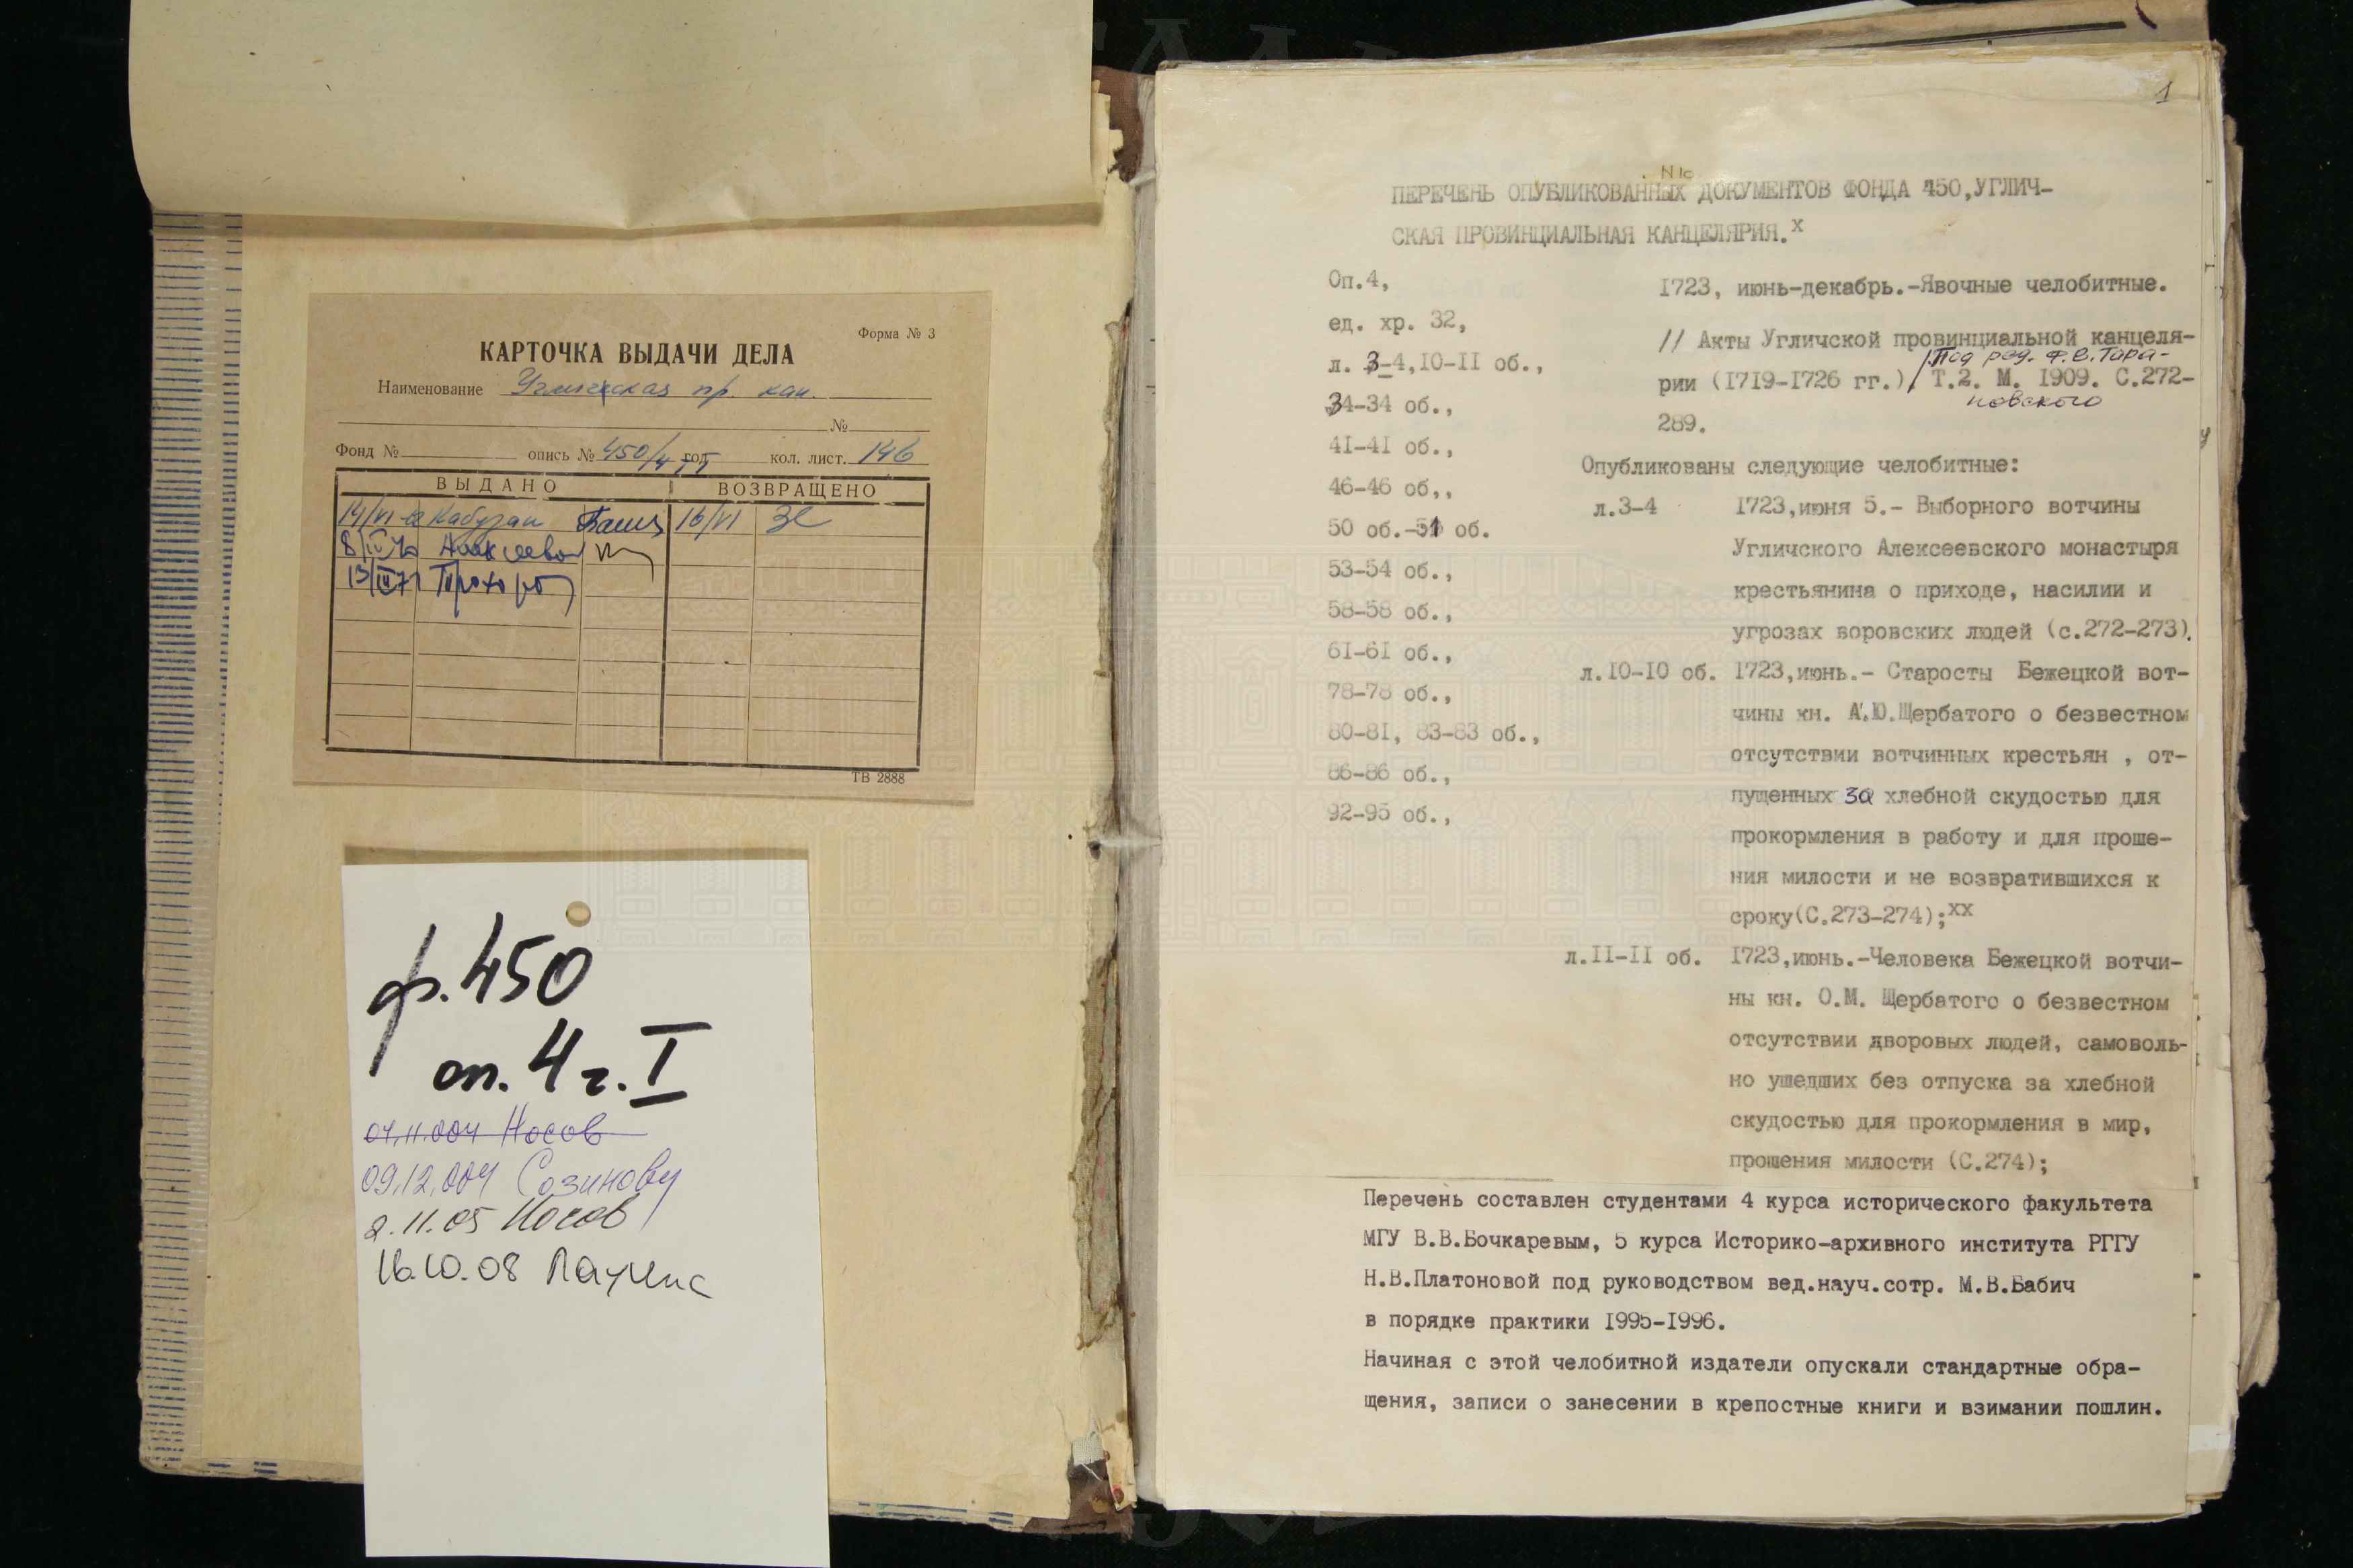 Форма № 3
КАРТОЧКА ВЫДАЧИ ДЕЛА
Наименование Угличская пр. кан.
№
Фонд № опись № 450/4 год кол. лист. 146
ВЫДАНО ВОЗВРАЩЕНО
14/VI Кабузан 16/VI
8/IV Алексеева
13/III 71 Прохоров
ТВ 2888
ф. 450
оп. 4 ч. I
04.11.004 Носов
09.12.004 Созинову
2.11.05 Носов
16.10.08
1
ПЕРЕЧЕНЬ ОПУБЛИКОВАННЫХ ДОКУМЕНТОВ ФОНДА 450,УГЛИЧ-
СКАЯ ПРОВИНЦИАЛЬНАЯ КАНЦЕЛЯРИЯ.х
Оп.4,
ед. хр. 32,
л. 3-4,10-11 об.,
34-34 об.,
41-41 об.,
46-46 об,,
50 об.-51 об.
53-54 об.,
58-58 об.,
61-61 об.,
78-78 об.,
80-81, 83-83 об.,
86-86 об.,
92-95 об.,
1723, июнь-декабрь.-Явочные челобитные.
// Акты Угличской провинциальной канцеля-
/Под ред. Ф.В.Тара-
рии (1719-1726 гг.)/ Т.2. М. 1909. С.272-
новского
289.
Опубликованы следующие челобитные:
л.3-4 1723,июня 5.- Выборного вотчины
Угличского Алексеевского монастыря
крестьянина о приходе, насилии и
угрозах воровских людей (с.272-273).
л.10-10 об. 1723,июнь.- Старосты Бежецкой вот-
чины кн. А.Ю.Щербатого о безвестном
отсутствии вотчинных крестьян , от-
пущенных за хлебной скудостью для
прокормления в работу и для проше-
ния милости и не возвратившихся к
сроку(С.273-274);хх
л.11-11 об. 1723,июнь.-Человека Бежецкой вотчи-
ны кн. О.М. Щербатого о безвестном
отсутствии дворовых людей, самоволь-
но ушедших без отпуска за хлебной
скудостью для прокормления в мир,
прошения милости (С.274);
Перечень составлен студентами 4 курса исторического факультета
МГУ В.В.Бочкаревым, 5 курса Историко-архивного института РГГУ
Н.В.Платоновой под руководством вед.науч.сотр. М.В.Бабич
в порядке практики 1995-1996.
Начиная с этой челобитной издатели опускали стандартные обра-
щения, записи о занесении в крепостные книги и взимании пошлин.